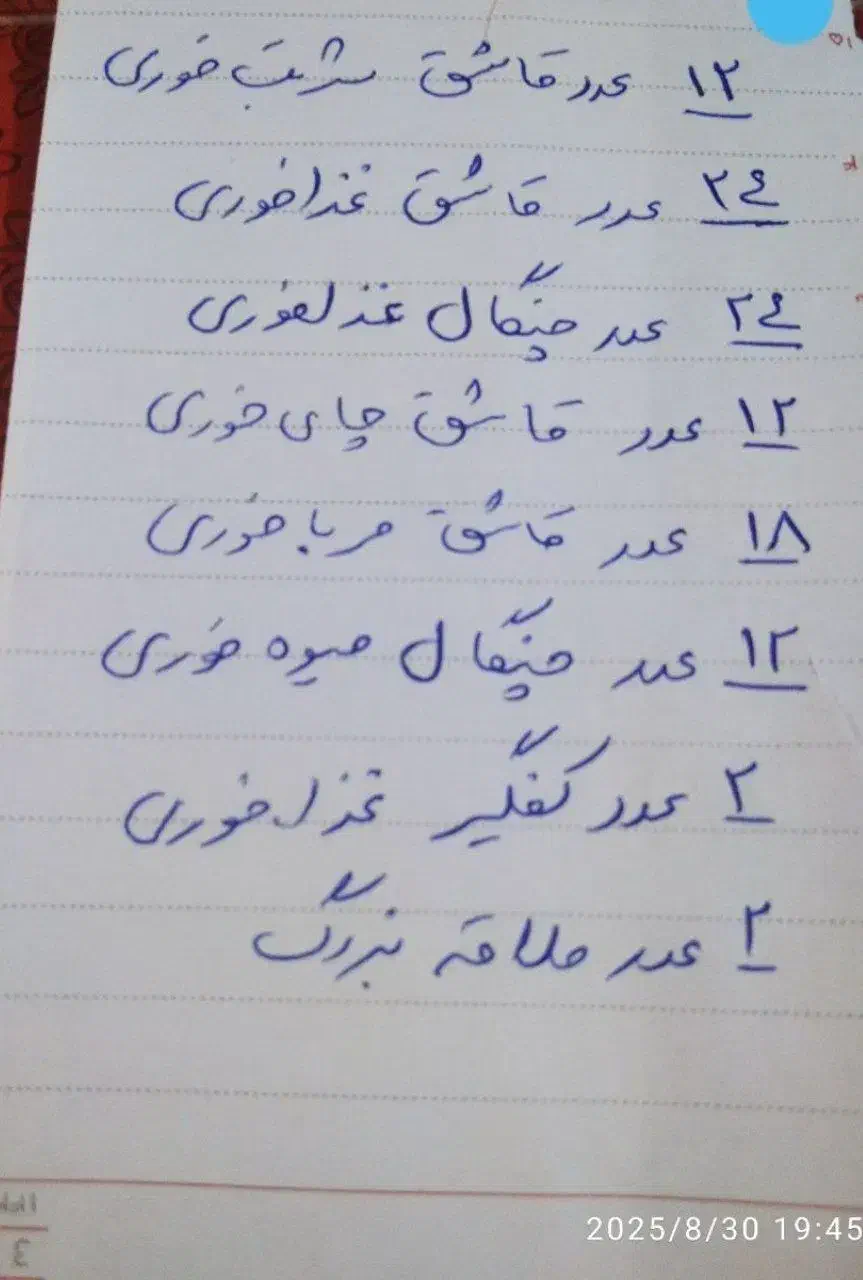 ۱۲ عدد قاشق شربت خوری
۲۴ عدد قاشق غذاخوری
۲۴ عدد چنگال غذاخوری
۱۲ عدد قاشق چای خوری
۱۸ عدد قاشق مرباخوری
۱۲ عدد چنگال میوه خوری
۲ عدد کفگیر غذاخوری
۲ عدد ملاقه بزرگ
2025/8/30 19:45